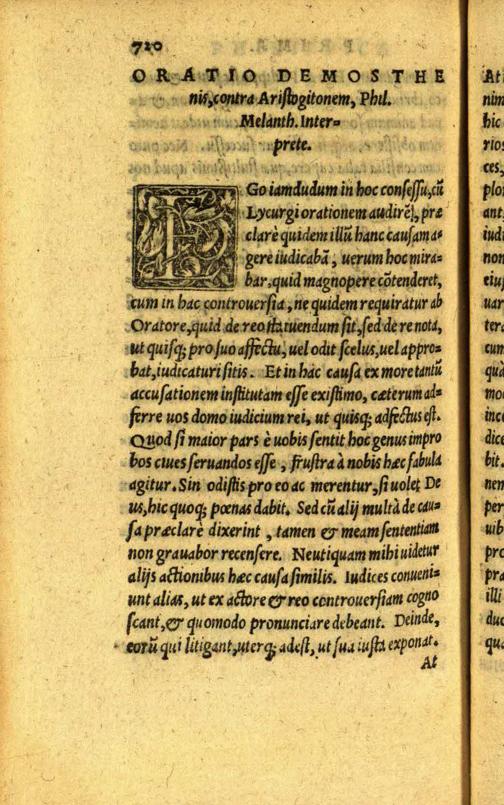 720
ORATIO DEMOSTHE
nis, contra Aristogitonem, Phil.
Melanth. Inter=
prete.
EGo iamdudum in hoc consessu, cũ
Lycurgi orationem audirẽ, præ
clarè quidem illũ hanc causam a=
gere iudicabã, uerum hoc mira=
bar, quid magnopere cõtenderet,
cum in hac controuersia, ne quidem requiratur ab
Oratore, quid de reo statuendum sit, sed de re nota,
ut quisq; pro suo affectu, uel odit scelus, uel appro=
bat, iudicaturi sitis. Et in hac causa ex more tantũ
accusationem institutam esse existimo, cæterum ad=
ferre uos domo iudicium rei, ut quisq; adfectus est.
Quod si maior pars è uobis sentit hoc genus impro
bos ciues seruandos esse, frustra à nobis hæc fabula
agitur. Sin odistis pro eo ac merentur, si uolet De
us, hic quoq; pœnas dabit. Sed cũ alij multa de cau=
sa præclarè dixerint, tamen & meam sententiam
non grauabor recensere. Neutiquam mihi uidetur
alijs actionibus hæc causa similis. Iudices conueni=
unt alias, ut ex actore & reo controuersiam cogno
scant, & quomodo pronunciare debeant. Deinde,
eorũ qui litigant, uterq; adest, ut sua iusta exponat.
At
At i
nim
hic
rios
ces,
plor
ant,
iudi
non
eius
uar
tera
cum
quà
mod
ince
dice
bit.
nem
per
uib
pro
pra
illi
duc
qua